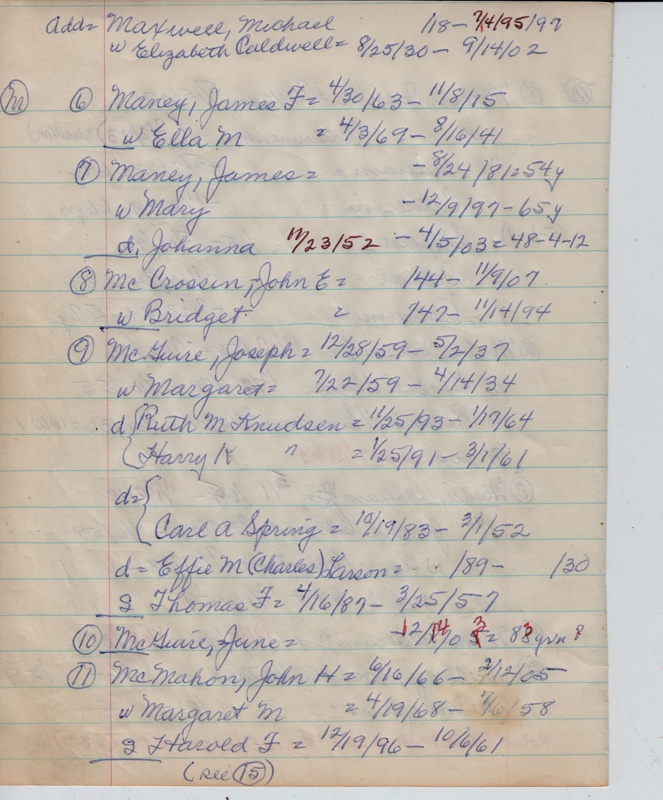 add = Maxwell, Michael /18 - 7/4/95/97
w Elizabeth Caldwell = 8/25/30 - 9/14/02
(M) (6) Maney, James F = 4/30/63 - 11/8/15
w Ella M = 4/3/69 - 8/16/41
(7) Maney, James = - 8/24/81 = 54y
w Mary - 12/9/97 - 65y
d, Johanna 11/23/52 - 4/5/03 = 48-4-12
(8) Mc Crossin, John E = /44 - 11/9/07
w Bridget = /47 - 11/14/94
(9) McGuire, Joseph = 12/28/59 - 5/2/37
w Margaret = 7/22/59 - 4/14/34
d { Ruth M Knudsen = 11/25/93 - 1/17/64
{ Harry K " = 1/25/91 - 3/1/61
d = {
Carl A Spring = 10/19/83 - 2/1/52
d = Effie M (Charles) Larson = /89 - /30
s Thomas F = 4/16/87 - 3/25/57
(10) McGuire, June = - 12/14/03 = 83 yrs ?
(11) McMahon, John H = 6/16/66 - 2/12/05
w Margaret M = 4/19/68 - /6/58
s Harold F = 12/19/96 - 10/6/61
(see (15))